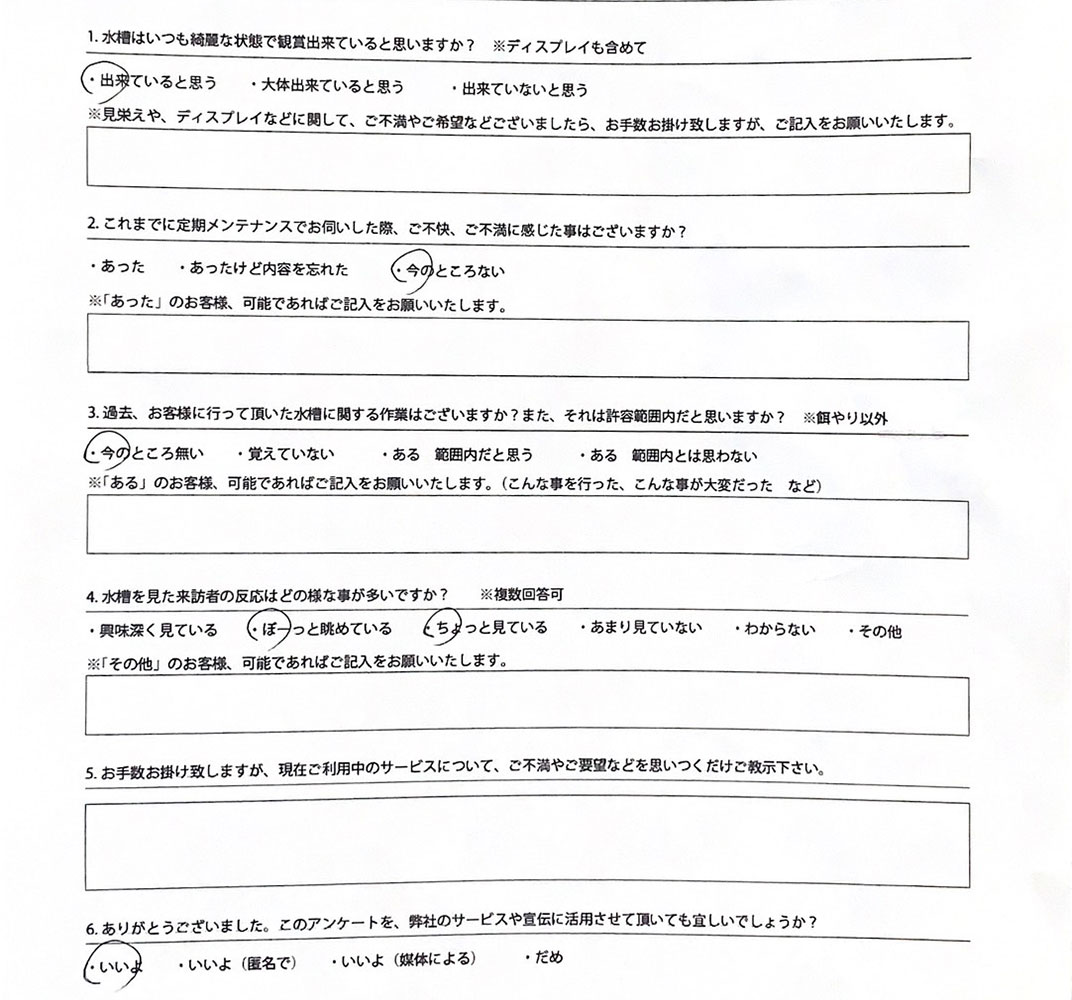 1. 水槽はいつも綺麗な状態で観賞出来ていると思いますか？　※ディスプレイも含めて
・出来ていると思う　・大体出来ていると思う　・出来ていないと思う
※見栄えや、ディスプレイなどに関して、ご不満やご希望などございましたら、お手数お掛け致しますが、ご記入をお願いいたします。
2. これまでに定期メンテナンスでお伺いした際、ご不快、ご不満に感じた事はございますか？
・あった　・あったけど内容を忘れた　・今のところない
※「あった」のお客様、可能であればご記入をお願いいたします。
3. 過去、お客様に行って頂いた水槽に関する作業はございますか？また、それは許容範囲内だと思いますか？　※餌やり以外
・今のところ無い　・覚えていない　・ある　範囲内だと思う　・ある　範囲内とは思わない
※「ある」のお客様、可能であればご記入をお願いいたします。（こんな事を行った、こんな事が大変だった　など）
4. 水槽を見た来訪者の反応はどの様な事が多いですか？　※複数回答可
・興味深く見ている　・ぼーっと眺めている　・ちょっと見ている　・あまり見ていない　・わからない　・その他
※「その他」のお客様、可能であればご記入をお願いいたします。
5. お手数お掛け致しますが、現在ご利用中のサービスについて、ご不満やご要望などを思いつくだけご教示下さい。
6. ありがとうございました。このアンケートを、弊社のサービスや宣伝に活用させて頂いても宜しいでしょうか？
・いいよ　・いいよ（匿名で）　・いいよ（媒体による）　・だめ